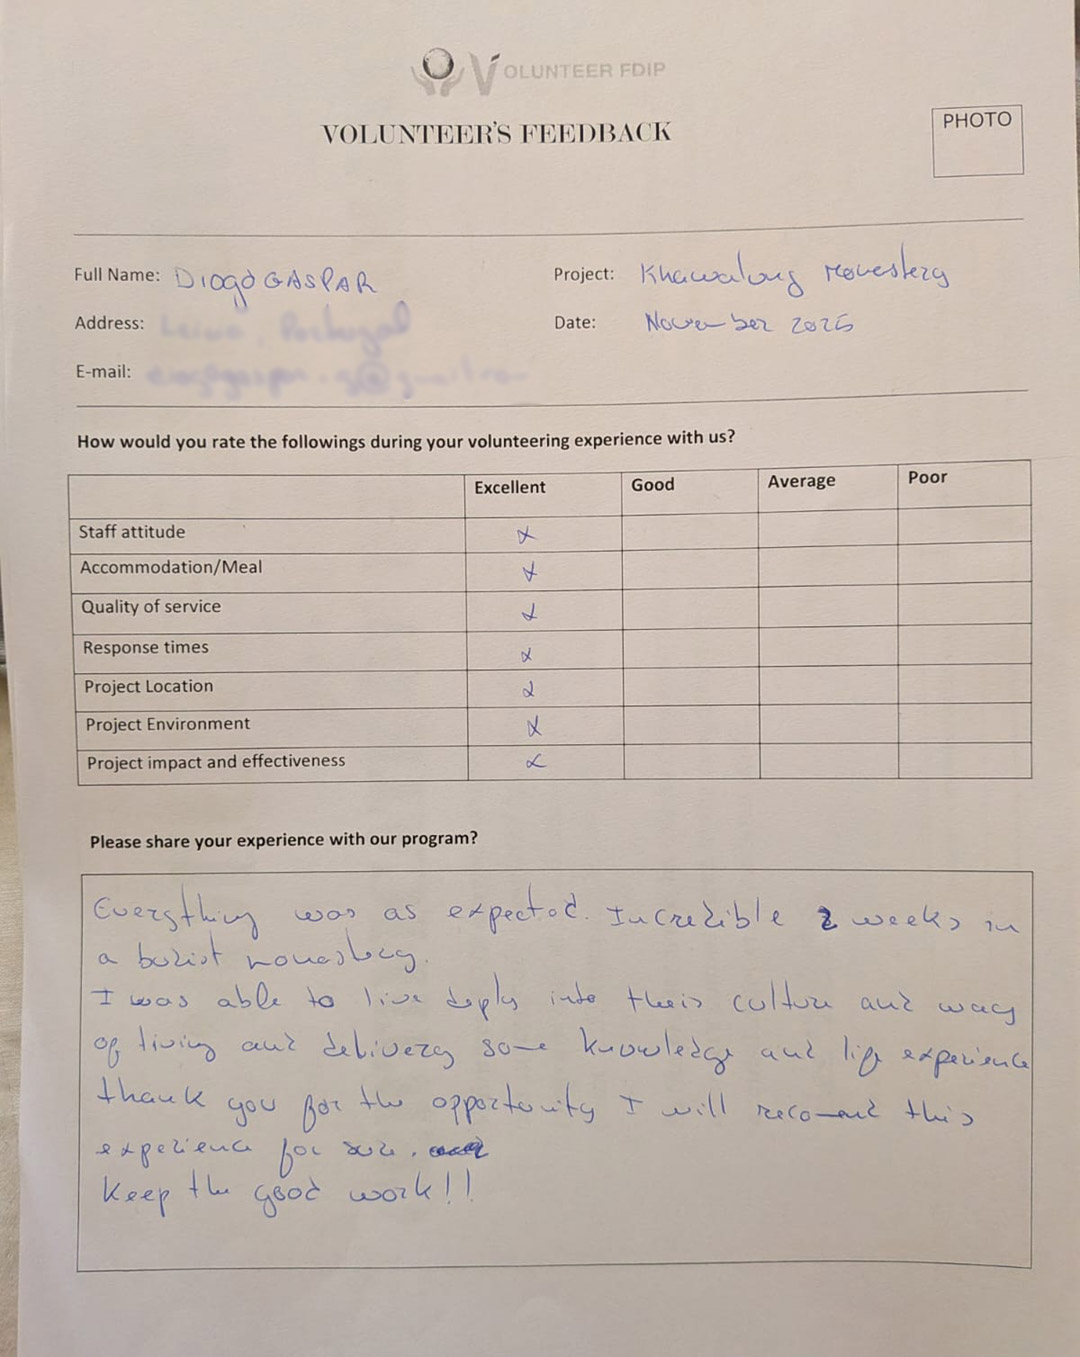 VOLUNTEER FDIP
VOLUNTEER'S FEEDBACK
PHOTO
Full Name: Diogo GASPAR
Project: Khawalung Monestery
Address:
Date: November 2025
E-mail:
How would you rate the followings during your volunteering experience with us?
Excellent Good Average Poor
Staff attitude x
Accommodation/Meal x
Quality of service x
Response times x
Project Location x
Project Environment x
Project impact and effectiveness x
Please share your experience with our program?
Everything was as expected. Incredible 2 weeks in
a budist monastery.
I was able to live deply into their culture and way
of living and delivery some knowledge and life experience
thank you for the opportunity I will recomend this
experience for sure.
Keep the good work!!